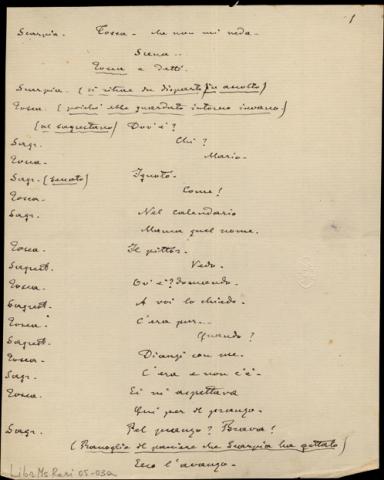 1
Scarpia. Tosca - che non mi veda.
Scena..
Tosca e detti.
Scarpia (si ritira in disparte in ascolto)
Tosca. (poichè ebbe guardato intorno invano)
(al sagrestano) Dov'è?
Sagr. Chi?
Tosca. Mario.
Sagr. (seccato) Ignoto.
Tosca. Come!
Sagr. Nel calendario
Manca quel nome.
Tosca. Il pittor.
Sagrest. Vedo.
Tosca. Ov'è? domando.
Sagrest. A voi lo chiedo.
Tosca. C'era pur...
Sagrest. Quando?
Tosca. Dianzi con me.
Sagr. C'era e non c'è.
Tosca. Ei mi aspettava
Qui per il pranzo.
Sagr. Pel pranzo? Brava!
(Raccoglie il paniere che Scarpia ha gettato)
Ecco l'avanzo.
Libr.Ms.Rari 05-03a